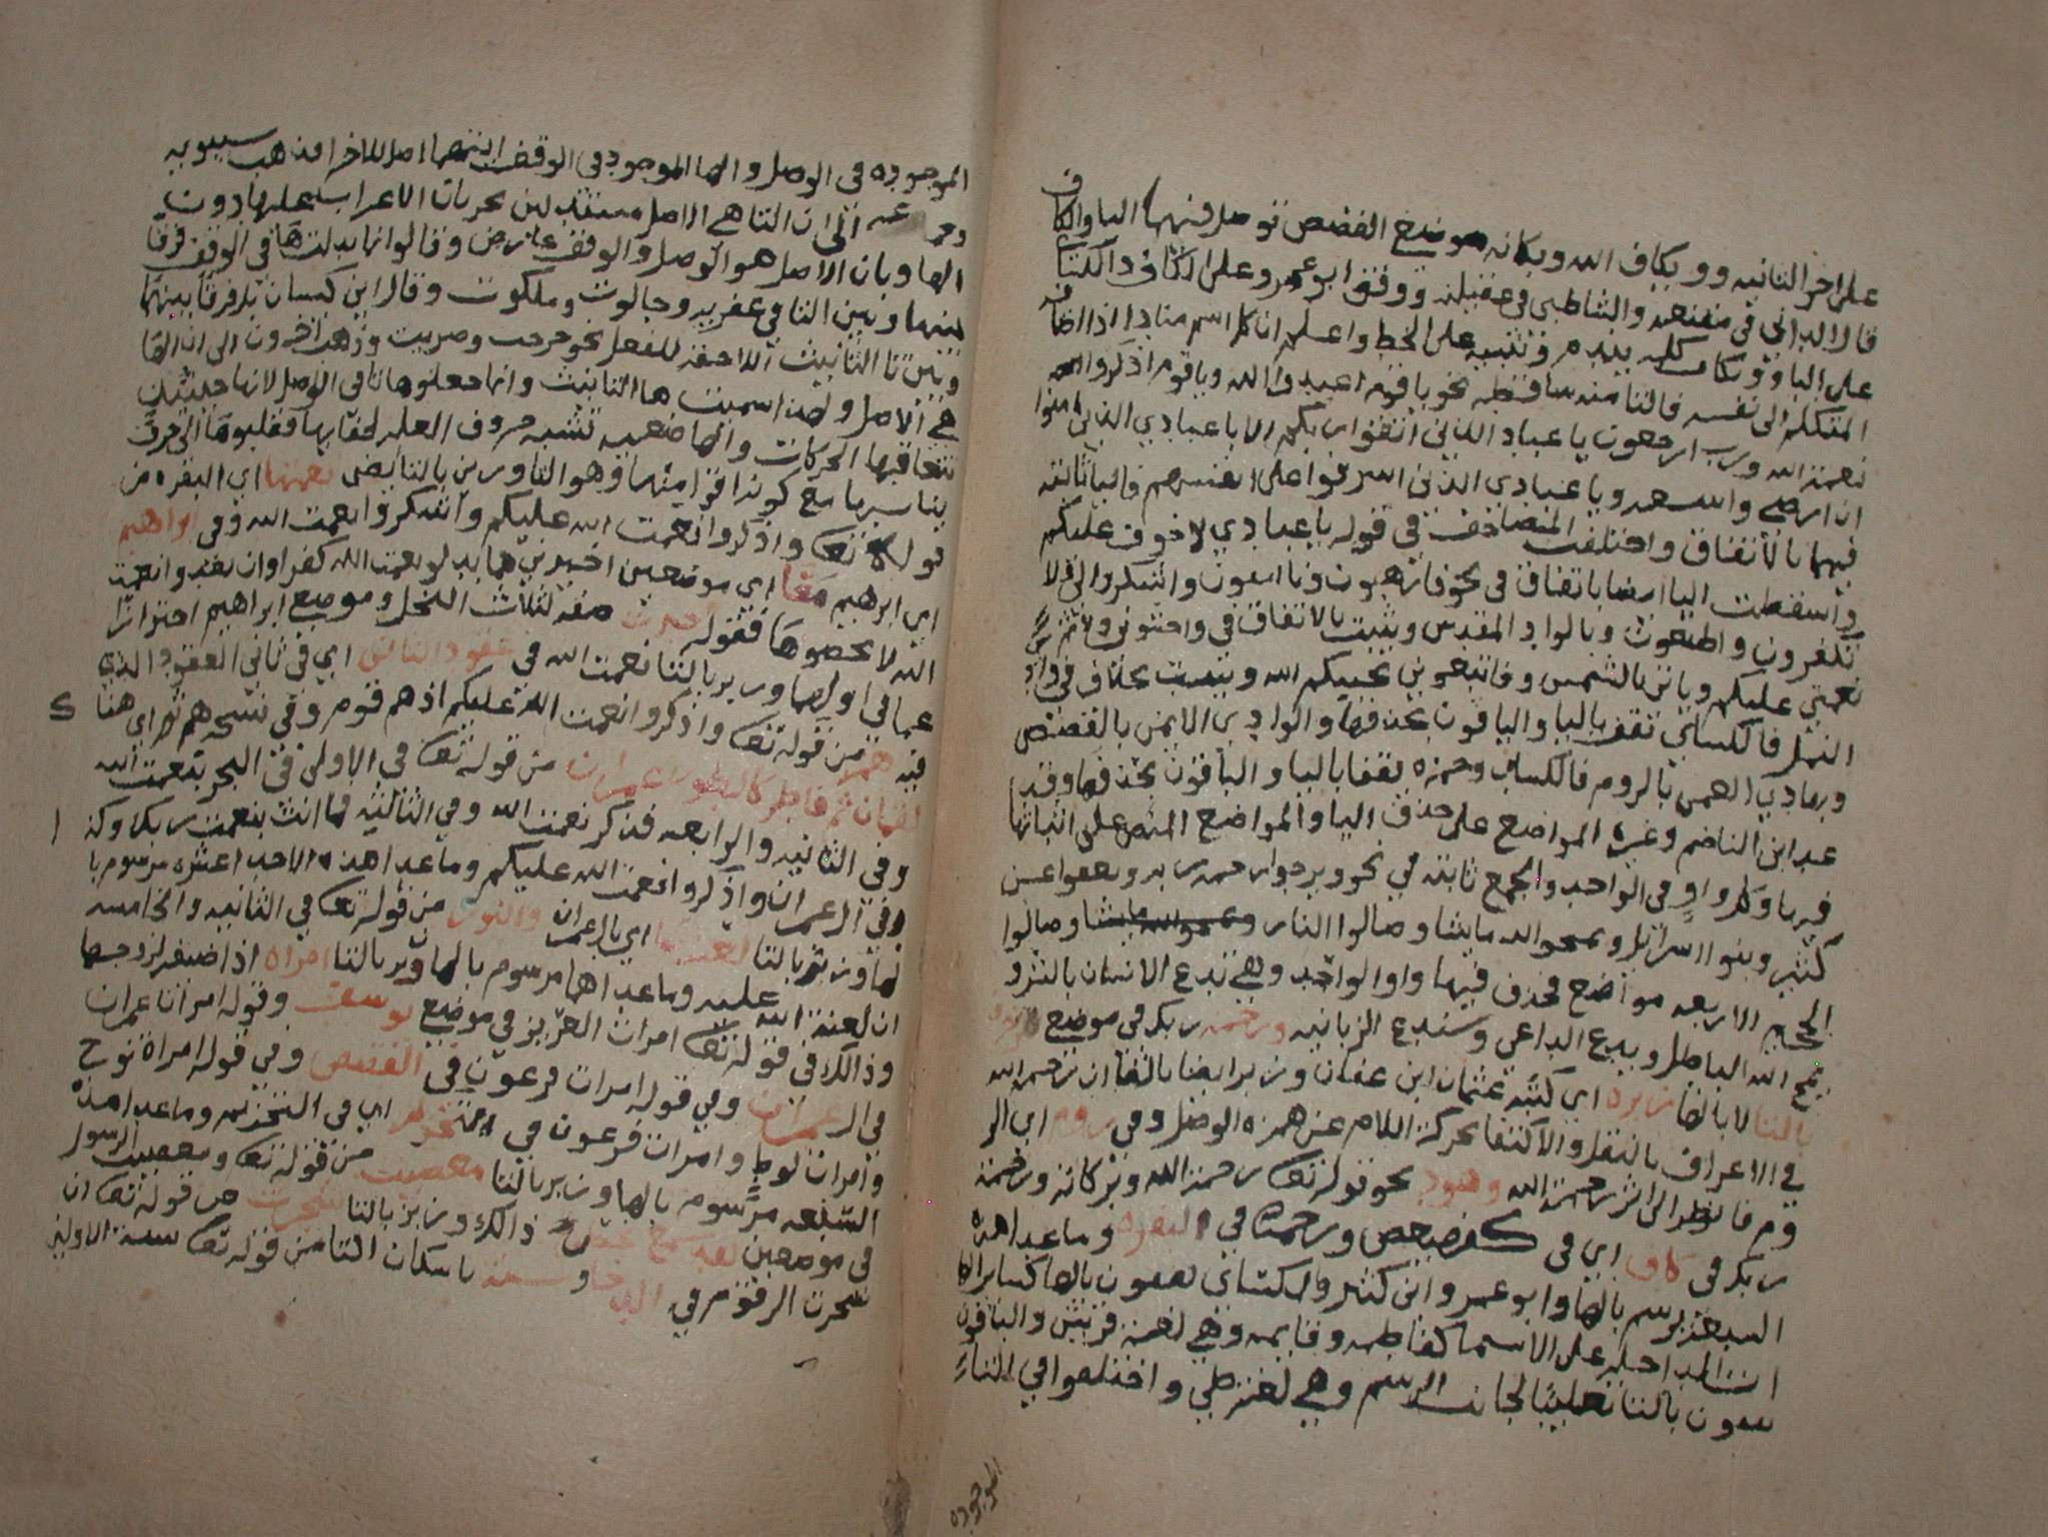 على اخر الثانيه وويكاف الله وبكانه موضع القصص توصل فيهما اليا والكاف
قال الداني في مقنعه والشاطبي في عقيلته ووقف ابو عمرو على الكاف والكسائ
على الياو وتكامـ كله بيهم وتنبيه على الخط واعلم ان كل اسم مناد اذا اضافه
المتكلم الى نفسه فاليا منه ساقطه نحو يا قوم اعبدوا الله ويا قوم اذكروا
نعمة الله ورب ارجعون يا عباد الذين اتقوا ربكم الا يا عبادي الذين امنوا
ان ارضي واسعه ويا عبادي الذين اسرفوا على انفسهم فاليا ثابته
فيهما بالاتفاق واختلفت المصاحف في قوله يا عبادي لا خوف عليكم
واسقطت اليا ايضا باتفاق في نحو فارهبون فاتقون واشكروا لي ولا
تكفرون واطيعون وبالواد المقدس ويثبت بالاتفاق في واخشوني ولاتم
نعمتي عليكم وياتي بالشمس وفاتبعوني يحببكم الله ويثبت بخلاف في واد
النمل فالكسائي تقف باليا والباقون بحذفها والوادي الايمن بالقصص
وبهادي العمي بالروم فالكساي وحمزه يقفا باليا والباقون بحذفها وقد
عد ابن الناضم وغيره المواضع على حذف اليا والمواضع المتص على اثباتها
فيها وكل واو في الواحد والجمع ثابته في نحو ويرجوا رحمه ربه ويعفوا عن
كثير وبنوا اسرائيل ويمحو الله ما يشا وصالوا النار وصالوا
الجحيم الا اربعه مواضع فحذف فيها واو الواحد وهي يدع الانسان بالشر و
يمح الله الباطل ويدع الداعي وسندع الزبانيه ورحمة ربك في موضع
بالتا لا بالها زبره اي كتبه عثمان ابن عفان وزبر ايضا بالتا ان رحمة الله
في الاعراف بالنقل والاكتفا بحركة اللام عن همزه الوصل وفي روم اي الر
وم فانظر الى اثر رحمة الله وهود نحو قوله تعا رحمة الله وبركاته ورحمة
ربك في كاف اي في كهيعص ورحمت في البقره وما عدا هذه
السبعه يرسم بالها وابو عمرو وابن كثير والكسائ يقفون بالها كساير الها
ات الداخله على الاسما كفاطمه وقايمه وهي لغة قريش والباقون
يقفون بالتا تغليبًا لجانب الرسم وهي لغة طي واختلفوا في التاء
الموجوده
الموجوده في الوصل والها الموجود في الوقف ايتهما اصل للاخرا فذهب سيبويه
وجماعه الى ان التا هي الاصل مستدلين بجريان الاعراب عليها دون
الها وبان الاصل هو الوصل والوقف عارض وقالوا انما بدلت ها في الوقف فرقا
بينها وبين التا في عفريت وجالوت وملكوت وقال ابن كيسان بل فرقا بينها
وبين تا التانيث اللاحقه للفعل نحو خرجت وضربت وذهب اخرون الى ان الها
هي الاصل ولهذا سميت ها التانيث وانما جعلوها تا في الوصل لانها حينئذ
تتعاقبها الحركات والها ضعيفه تشبه حروف العله لخفايها فقلبوها الى حرف
يناسبها مع كونه اقوا منها وهو التا وزبر بالتا ايضى نعمتها اي البقره من
قوله تعا واذكروا نعمت الله عليكم واشكروا نعمت الله وفي ابراهيم
اي ابرهيم معًا اي موضعين اخيرين هما بدلو نعمت الله كفرا وان تعدوا نعمت
الله لا تحصوها فقوله اخيرات صفه لثلاث النحل وموضع ابراهيم احترازا
عما في اولها وزبر بالتا نعمت الله في عقود الثاني اي في ثاني العقود الذي
فيه هم من قوله تعا واذكروا نعمت الله عليكم اذ هم قوم وفي نسخه هم ثم اي هنا
لقمان ثم فاطر كالطور عمران من قوله تعا في الاولى في البحر بنعمت الله
وفي الثانيه والرابعه فذكر نعمت الله وفي الثالثه فما انت بنعمت ربك وكذ
وفي ال عمران واذكروا نعمت الله عليكم وما عدا هذه الاحد اعشره مرسوم با
لها وزبر بالتا لعنت بها اي بال عمران والنور من قوله تعا في الثانيه والخامسه
ان لعنة الله عليه وما عداهما مرسوم بالها وزبر بالتا امراة اذا اضيف لزوجها
وذالك في قوله تعا امرات العزيز في موضع يوسف وقوله امرات عمران
في ال عمران وفي قوله امرات فرعون في القصص وفي قوله امراة نوح
وامرات لوط وامرات فرعون في تحريم اي في التحريم وما عدا هذه
السبعه مرسوم بالها وزبر بالتا معصيت من قوله تعا ومعصيت الرسول
في موضعين بقد سمع يخص ذالك وزبر بالتا شجرت من قوله تعا ان
شجرت الزقوم في الدخان وسنت باسكان التا من قوله تعا سنة الاولين